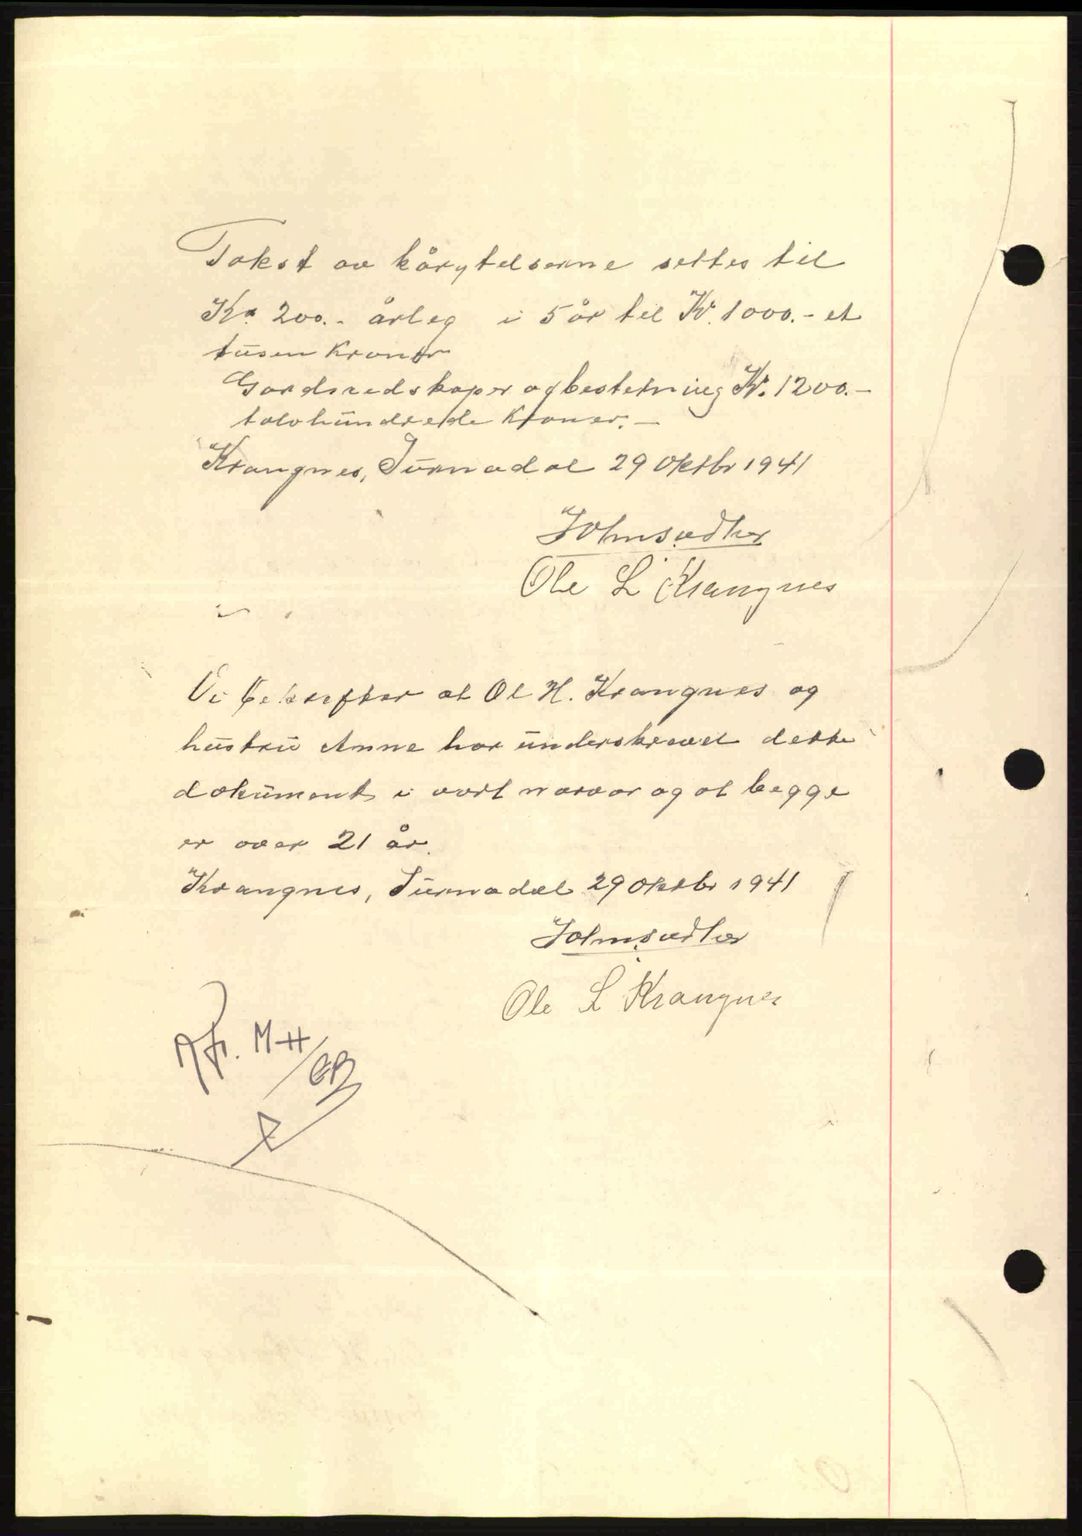 Takst av kårytelserne settes til
Kr 200.- årleg i 5 år til Kr. 1000.- et
tusen Kroner
Gardsredskaper og besetning Kr. 1200.-
tolvhundrede Kroner.-
Krangnes, Surnadal 29 Oktbr 1941
J Holmsæther
Ole L Krangnes
Vi bekrefter at Ol H. Krangnes og
hustru Anne har underskrevet dette
dokument i vort nærvær og at begge
er over 21 år.
Krangnes, Surnadal 29 Oktbr 1941
J Holmsæther
Ole L Krangnes
Afr. MH/EB